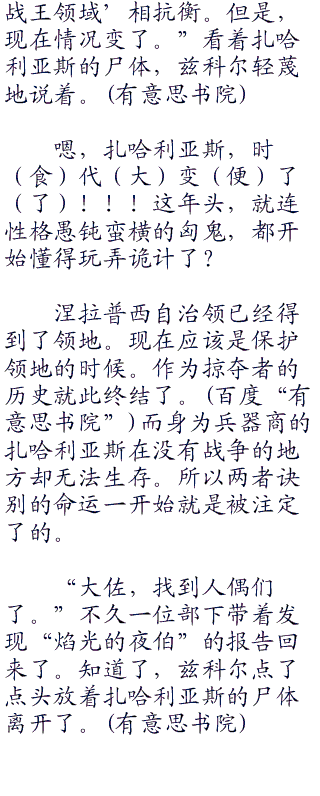 战王领域’相抗衡。但是，
现在情况变了。”看着扎哈
利亚斯的尸体，兹科尔轻蔑
地说着。(有意思书院)
嗯，扎哈利亚斯，时
（食）代（大）变（便）了
（了）！！！这年头，就连
性格愚钝蛮横的匈鬼，都开
始懂得玩弄诡计了？
涅拉普西自治领已经得
到了领地。现在应该是保护
领地的时候。作为掠夺者的
历史就此终结了。(百度“有
意思书院”)而身为兵器商的
扎哈利亚斯在没有战争的地
方却无法生存。所以两者诀
别的命运一开始就是被注定
了的。
“大佐，找到人偶们
了。”不久一位部下带着发
现“焰光的夜伯”的报告回
来了。知道了，兹科尔点了
点头放着扎哈利亚斯的尸体
离开了。(有意思书院)